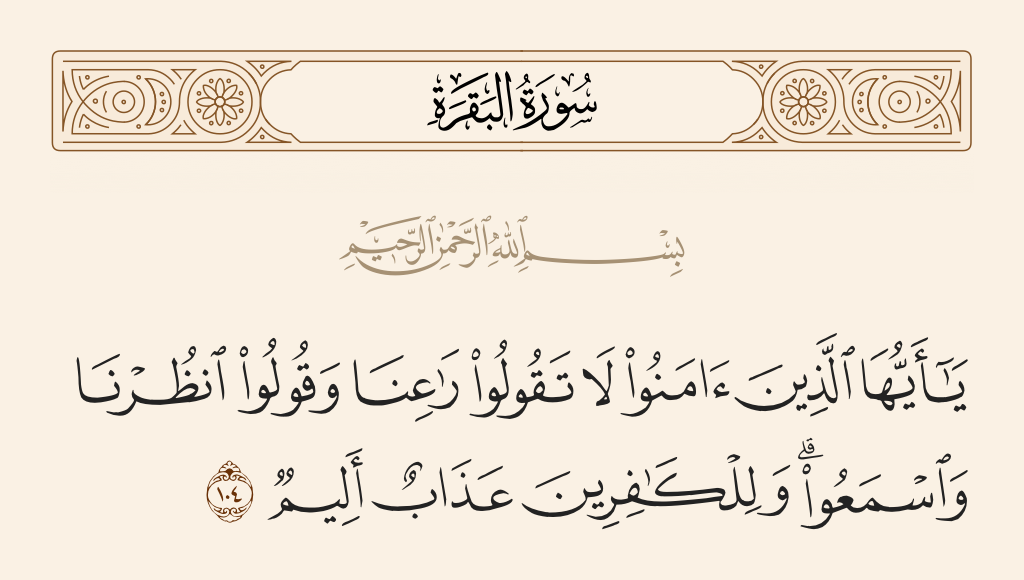 سُورَةُ البَقَرَةِ
بِسْمِ ٱللَّهِ ٱلرَّحْمَٰنِ ٱلرَّحِيمِ
يَـٰٓأَيُّهَا ٱلَّذِينَ ءَامَنُوا۟ لَا تَقُولُوا۟ رَٰعِنَا وَقُولُوا۟ ٱنظُرْنَا
وَٱسْمَعُوا۟ ۗ وَلِلْكَـٰفِرِينَ عَذَابٌ أَلِيمٌ ١٠٤